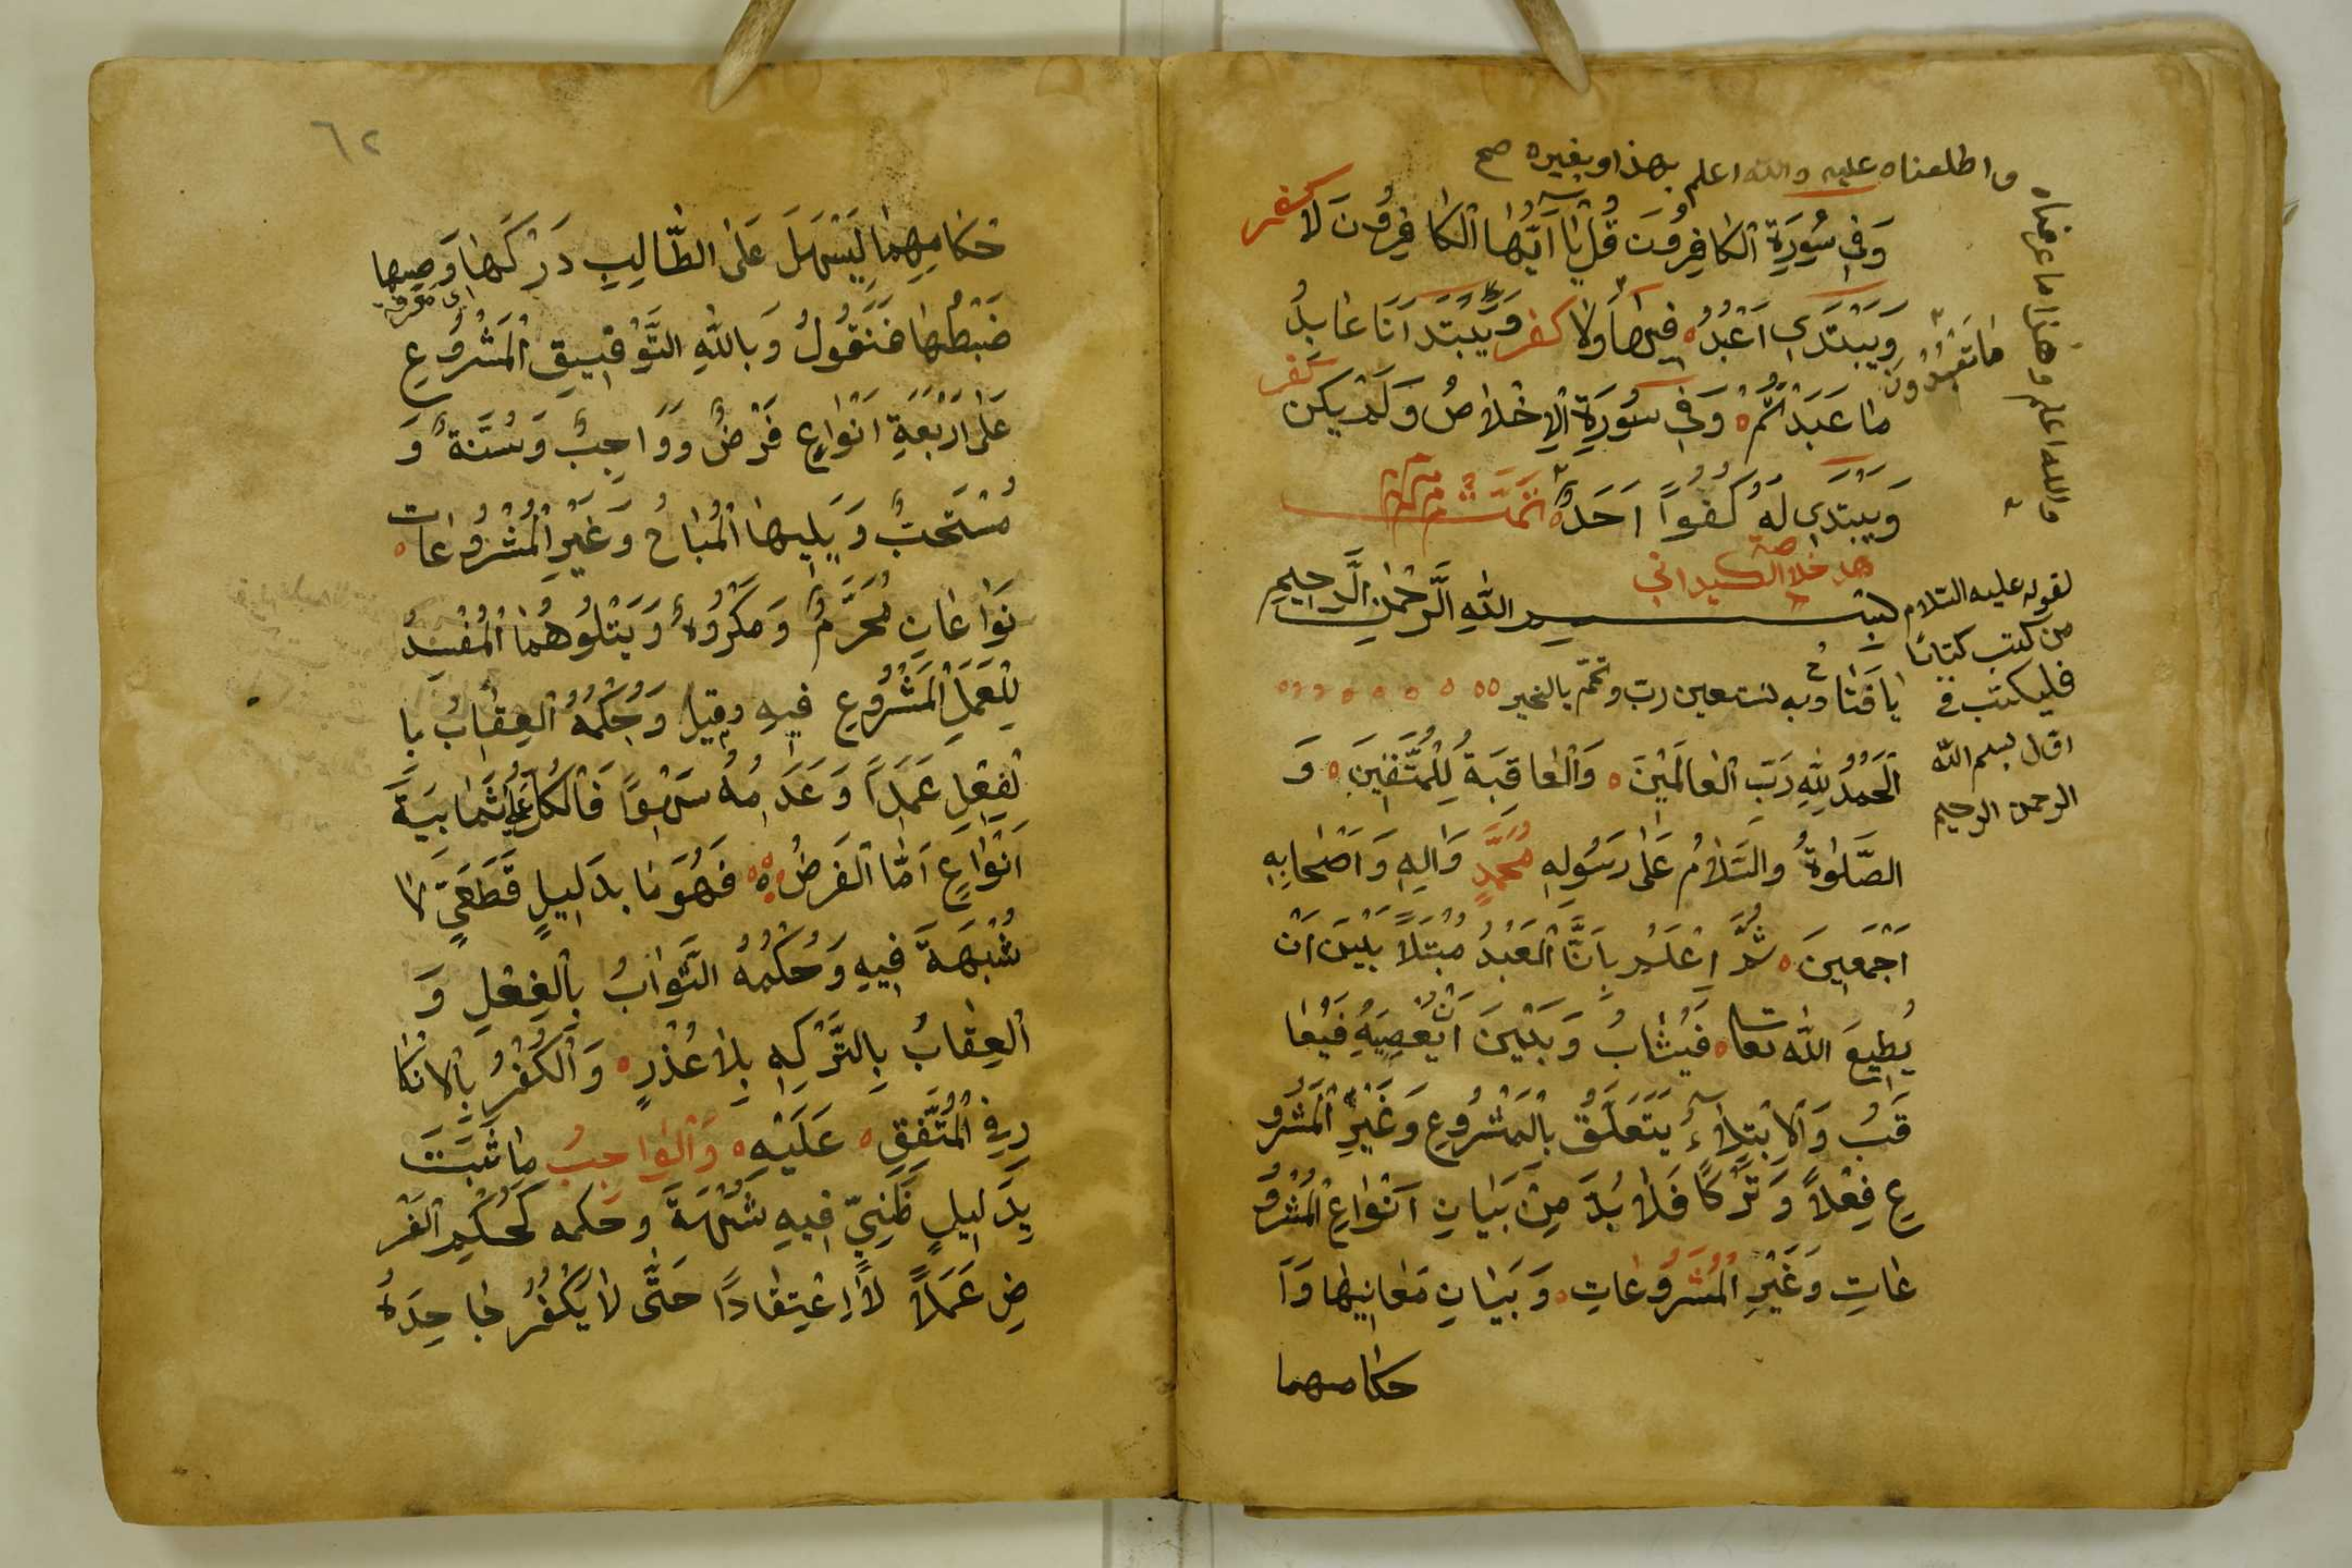 واطلعناه عليه والله اعلم بهذا وبغيره صح
وَفِي سُورَةِ الكَافِرُونَ قُلْ يَا اَيُّهَا الكَافِرُونَ لَا كفر
وَيَبْتَدِي اَعْبُدُ فيها وَلا كفر وَيَبْتَد اَنَا عَابِدٌ
مَا تَعْبُدُونَ
مَا عَبَدْتُمْ وَفِي سُورَةِ الْاِخْلَاصُ وَلَمْ يكن كفر
وَيَبْتَدِي لَهُ كُفُوًا اَحَدٌ تمّت م م م
والله اعلم وهذا ما عرفناه
هذ خلاصة الكيداني
بِسْمِ اللهِ الرَّحْمٰنِ الرَّحِيمِ
لقوله عليه السّلام
من كتب كتابًا
فليكتب في
اوّل بسم الله
الرحمن الرحيم
يا فتّاح وبه نستعين ربّ وتمّم بالخير
اَلْحَمْدُ لِلّٰهِ رَبِّ الْعَالَمِيْنَ وَالْعَاقِبَةُ لِلْمُتَّقِينَ وَ
الصَّلٰوةُ والسَّلَامُ عَلٰى رَسُولِهِ مُحَمَّدٍ وَاٰلِهِ وَاَصْحَابِهِ
اَجْمَعِينَ ثُمَّ اِعْلَمْ بِاَنَّ الْعَبْدَ مُبْتَلًا بَيْنَ اَنْ
يُطِيعَ اللّٰه تعا فَيُثَابُ وَبَيْنَ اَنْ يَعْصِيَهُ فَيُعَا
قَبُ وَالْاِبْتِلَاءُ يَتَعَلَّقُ بِالْمَشْرُوعِ وَغَيْرِ الْمَشْرُو
عِ فِعْلًا وَتَرْكًا فَلَا بُدَّ مِنْ بَيَانِ اَنْوَاعِ الْمَشْرُو
عَاتِ وَغَيْرِ الْمَشْرُوعَاتِ وَبَيَانِ مَعَانِيهَا وَاَ
حكامهما
٦٢
حْكَامِهِمَا لِيَسْهَلَ عَلَى الطَّالِبِ دَرْكَهَا وَضبها
اى معرفة
ضَبْطُهَا فَنَقُولُ وَبِاللّٰهِ التَّوْفِيقِ الْمَشْرُوعِ
عَلٰى اَرْبَعَةِ اَنْوَاعٍ فَرْضٌ وَوَاجِبٌ وَسُنَّةٌ وَ
مُسْتَحَبٌّ وَيَلِيهَا الْمُبَاحُ وَغَيْرِ الْمَشْرُوعَات
نَوَاعَانِ مُحَرَّمٌ وَمَكْرُوهٌ وَيَتْلُوهُمَا الْمُفْسِدُ
لِلْعَمَلِ الْمَشْرُوعِ فِيهِ وقيل وَحُكْمُهُ الْعِقَابُ بِا
لْفِعْلِ عَمَدًا وَعَدَمُهُ سَهْوًا فَالْكُلُّ عَلٰى ثَمَانِيَةَ
اَنْوَاعٍ اَمَّا الْفَرْضُ فَهُوَ مَا بدَلِيلٍ قَطْعِيٍّ لَا
شُبْهَةَ فِيهِ وَحُكْمُهُ الثَّوَابُ بِالْفِعْلِ وَ
الْعِقَابُ بِالتَّرْكِهِ بِلَا عُذْرٍ وَالْكُفْرُ بِالْاِنْكَا
رِ فِي الْمُتَّفَقِ عَلَيْهِ وَالْوَاجِبُ مَا ثَبَتَ
بِدَلِيلٍ ظَنِّيٍّ فِيهِ شُبْهَةَ وحكمه كَحُكْمِ الْفَرْ
ضِ عَمَلًا لَا اِعْتِقَادًا حَتّٰى لَا يُكْفَرُ جَاحِدُهُ